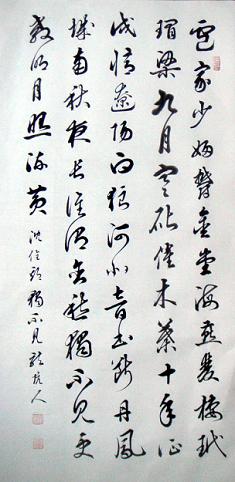 盧家少婦鬱金堂海燕雙棲玳
瑁梁九月寒砧催木葉十年征
戍憶遼陽白狼河北音書斷丹鳳
城南秋夜長誰謂含愁獨不見更
教明月照流黃 沈佺期 獨不見 人